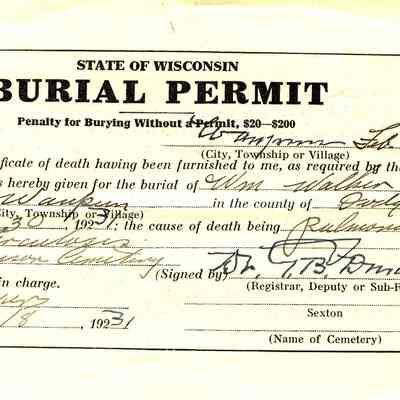 STATE OF WISCONSIN
BURIAL PERMIT
Penalty for Burying Without a Permit, $20—$200
Waupun Feb
(City, Township or Village)
ficate of death having been furnished to me, as required by the
is hereby given for the burial of Wm Walker
Waupun in the county of Dodge
ity, Township or Village)
30, 1931; the cause of death being Pulmon
culosis
Cemetery (Signed by) Dr. T. B.
(Registrar, Deputy or Sub-R
n charge.
Sexton
/8, 1931
(Name of Cemetery)